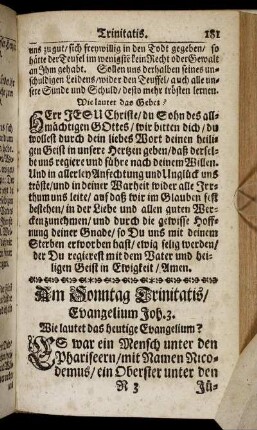 Trinitatis. 181
uns zugut/ sich freywillig in den Todt gegeben/ so
hätte der Teufel im wenigsten kein Recht oder Gewalt
an Jhm gehabt. Sollen uns derhalben seines un-
schuldigen Leidens/ wider den Teuffel/ auch alle un-
sere Sünde und Schuld/ desto mehr trösten lernen.
Wie lautet das Gebet?
HErr JESU Christe/ du Sohn des all-
mächtigen GOttes/ wir bitten dich/ du
wollest durch dein liebes Wort deinen heili-
gen Geist in unsere Hertzen geben/ daß derselbe
uns regiere und führe nach deinem Willen.
Und in allerley Anfechtung und Unglück uns
tröste/ und in deiner Warheit wider alle Irr-
thum uns leite/ auf daß wir im Glauben fest
bestehen/ in der Liebe und allen guten Wer-
cken zunehmen/ und durch die gewisse Hoff-
nung deiner Gnade/ so Du uns mit deinem
Sterben erworben hast/ ewig selig werden/
der Du regierest mit dem Vater und hei-
ligen Geist in Ewigkeit/ Amen.
Am Sonntag Trinitatis/
Evangelium Joh. 3.
Wie lautet das heutige Evangelium?
ES war ein Mensch unter den
Phariseern/ mit Namen Nico-
demus/ ein Oberster unter den
N 3 Jü-